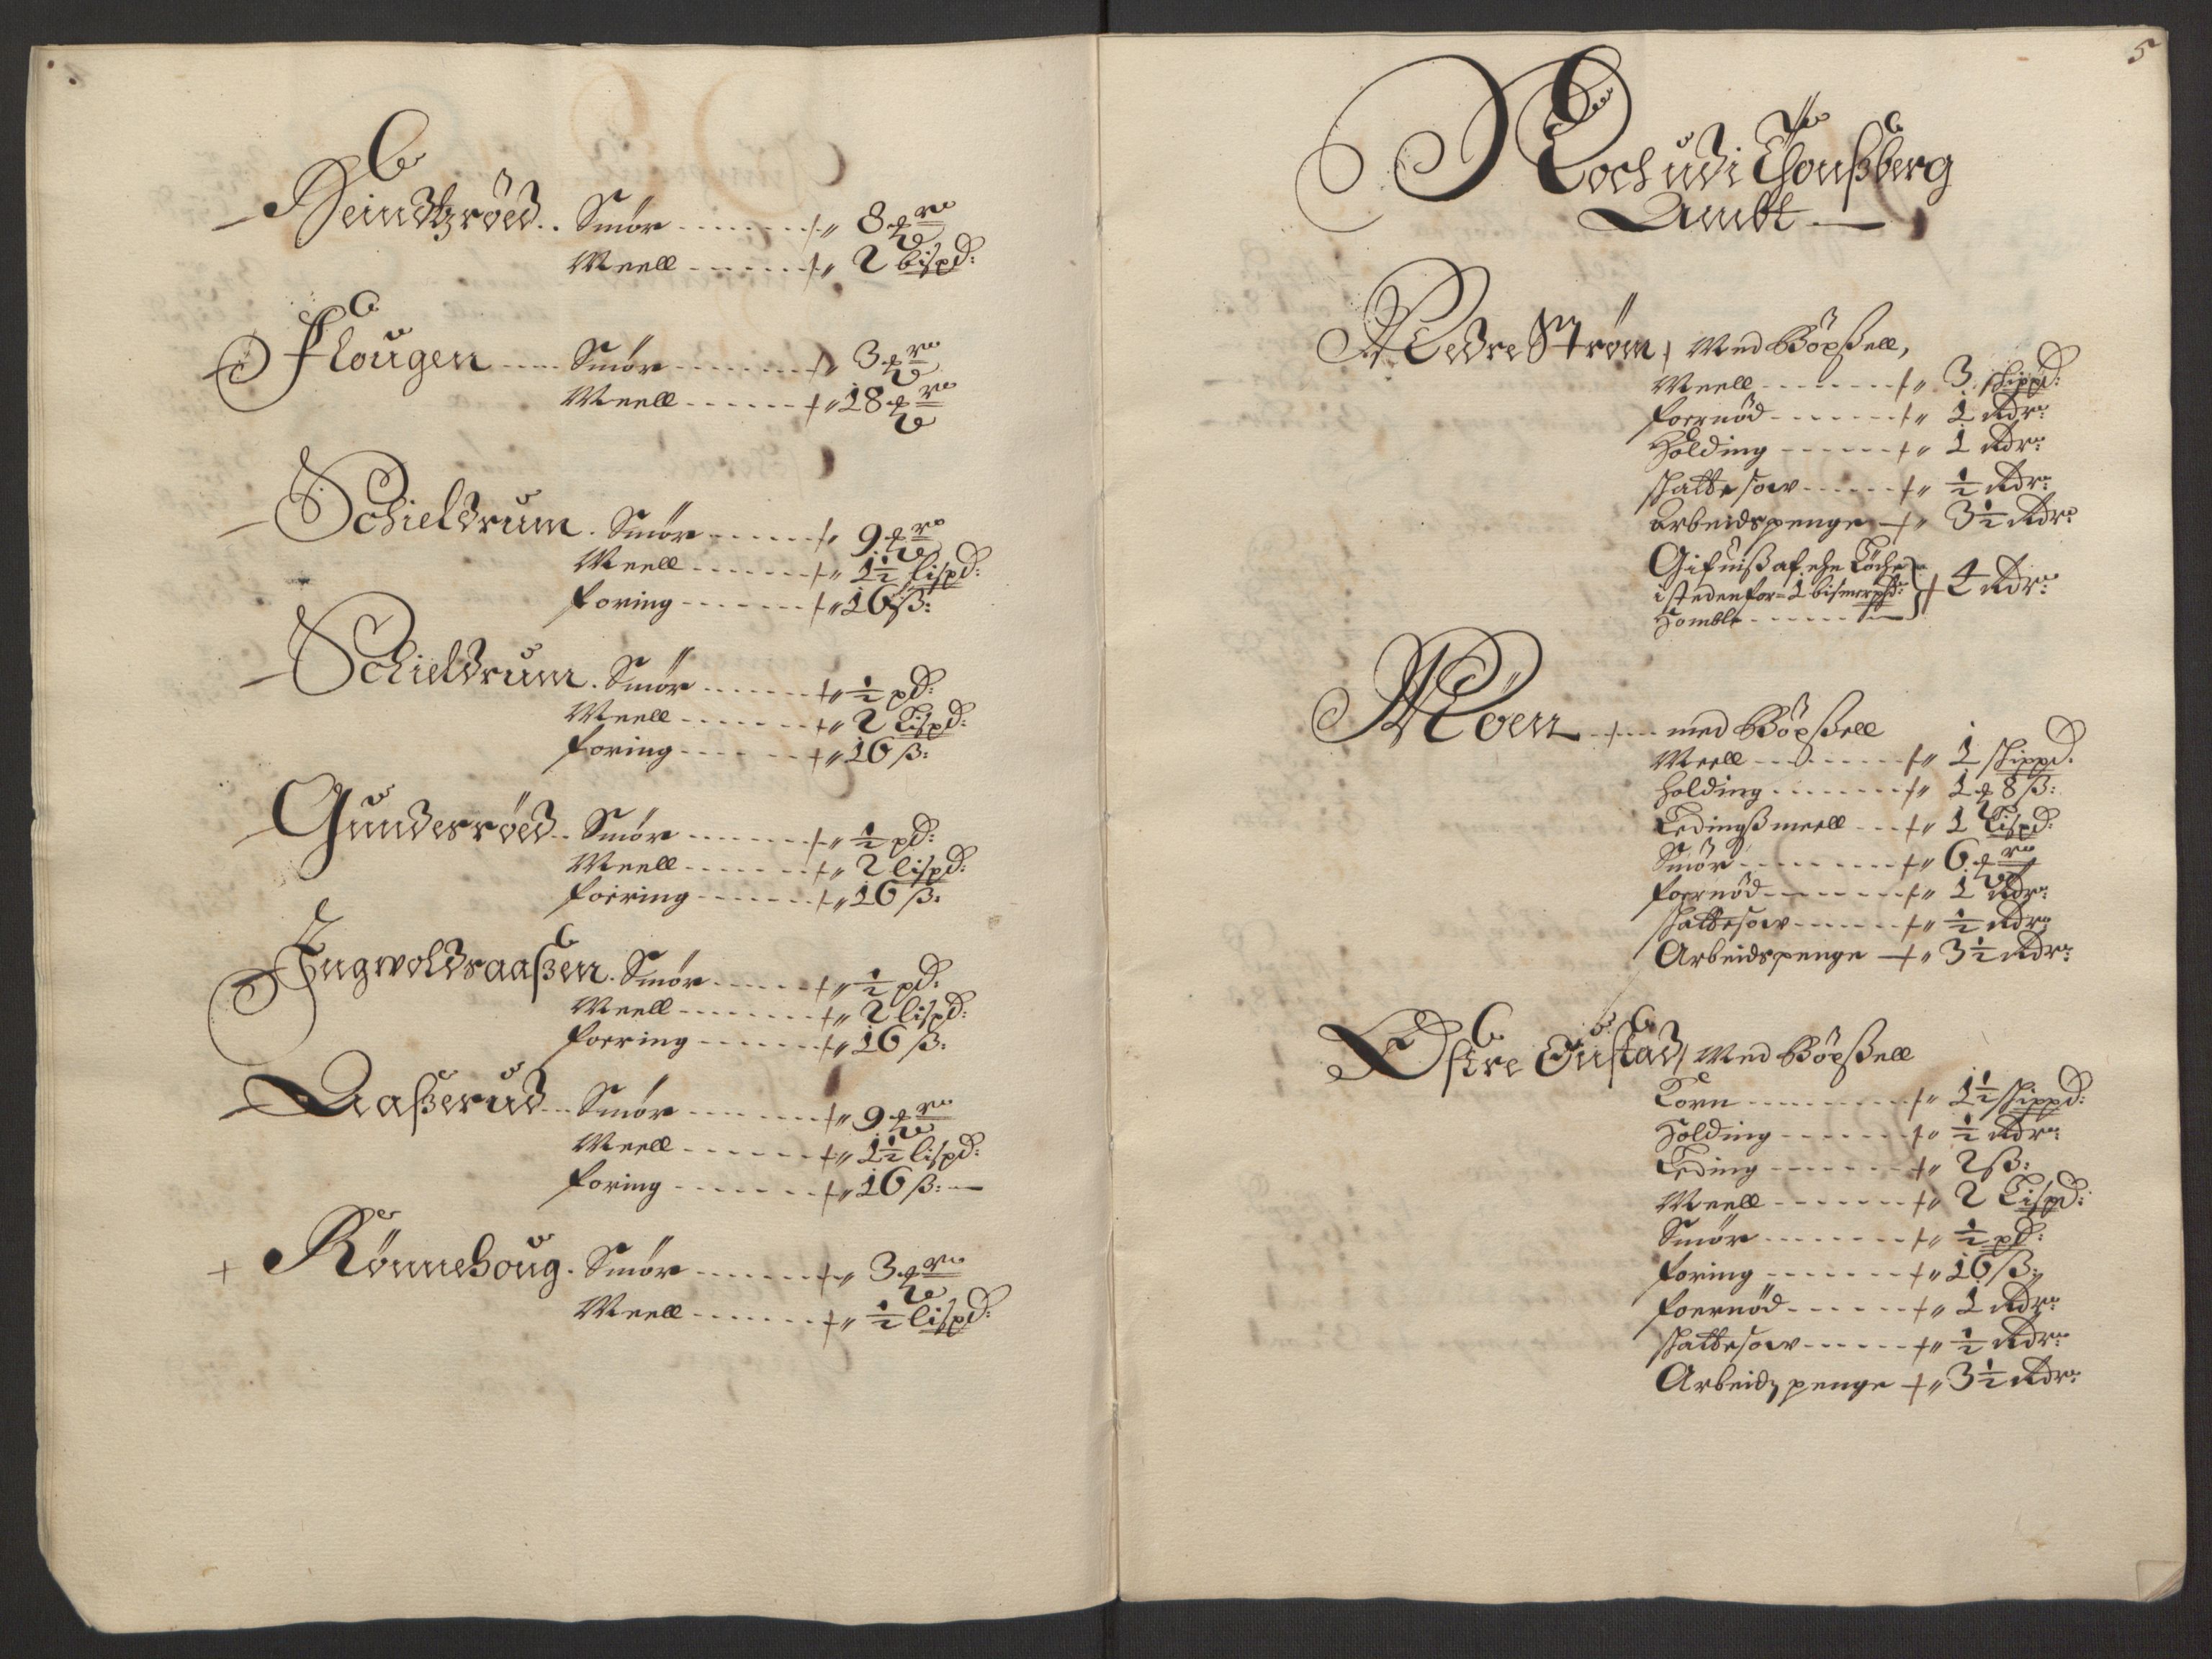 Heindtzröed.. Smör ........ ⸗ 8 ℔
Meell ...... ⸗ 2 bispd:
Hougen ..... Smör ........ ⸗ 3 ℔
Meell ...... ⸗ 18 ℔
Schieldrum. Smör ...... ⸗ 9 ℔
Meell ....... ⸗ 1½ lispd:
foring ....... ⸗ 16 ß:
Schieldrum. Smör ...... ⸗ ½ pd:
Meell ....... ⸗ 2 Lispd:
foring ...... ⸗ 16 ß:
Gunderröed.. Smör ....... ⸗ ½ pd:
Meell ....... ⸗ 2 lispd:
foering ...... ⸗ 16 ß:
Ingwoldsaaßen. Smör ..... ⸗ ½ pd:
Meell ........ ⸗ 2 lispd:
foering ....... ⸗ 16 ß:
Aaßerud... Smör ........ ⸗ 9 ℔
Meell ...... ⸗ 1½ lispd:
foring ...... ⸗ 16 ß: —
+ Rönnehoug. Smör ....... ⸗ 3 ℔
Meell ...... ⸗ ½ lispd:
5
Noch udi Thonßberg
Ambt —
Nedre Ström, Med Böxßell,
Meell ........ ⸗ 3 shippd:
foernöd ....... ⸗ 1 Rdr:
Holding ...... ⸗ 1 Rdr:
skattesow ...... ⸗ ½ Rdr:
Arbeidspenge — ⸗ 3½ Rdr:
istedenfor 1 bismerpd: + 4 Rdr:
Homble ......
Moen ..... med Böxßell
Meell ......... ⸗ 1 shippd:
holding ........ ⸗ 1 ⸗ 8 ß:
Ledingßmeell ... ⸗ 1 Lispd:
Smör ......... ⸗ 6 ℔
foernöd ........ ⸗ 1 Rdr:
skattesow ...... ⸗ ½ Rdr:
Arbeidspenge — ⸗ 3½ Rdr:
Østre Med Böxßell
Korn ......... ⸗ 1½ shippd:
Holding ....... ⸗ ½ Rdr:
Leding ...... ⸗ 2 ß:
Meell ....... ⸗ 2 Lispd:
Smör ....... ⸗ ½ pd:
foring ....... ⸗ 16 ß:
foernöd ...... ⸗ 1 Rdr:
skattesow ...... ⸗ ½ Rdr:
Arbeidzpenge ⸗ 3½ Rdr: